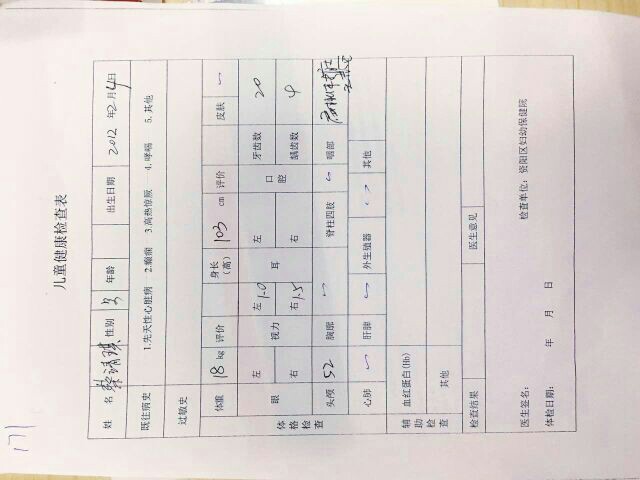 171
儿童健康检查表
姓 名 性别 年龄 出生日期 2012 年 2 月 4 日
既往病史 1.先天性心脏病 2.癫痫 3.高热惊厥 4.哮喘 5.其他
过敏史
体重 18 kg 评价 身长（高） 103 cm 评价 皮肤
体格检查 眼 左 视力 左 1.0 耳 左 口腔 牙齿数 20
右 右 1.5 右 龋齿数 4
头颅 52 胸廓 脊柱四肢 咽部
心肺 肝脾 外生殖器 其他
辅助检查 血红蛋白(Hb)
其他
检查结果 医生意见
医生签名： 检查单位：资阳区妇幼保健院
体检日期： 年 月 日